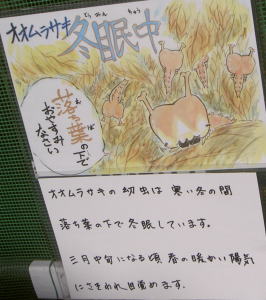 オオムラサキ
冬眠中
とうみん ちゅう
落ち葉の下で
おやすみ
なさい
オオムラサキの幼虫は 寒い冬の間
落ち葉の下で冬眠しています。
三月中旬になる頃 春の暖かい陽気
にさそわれ目覚めます。